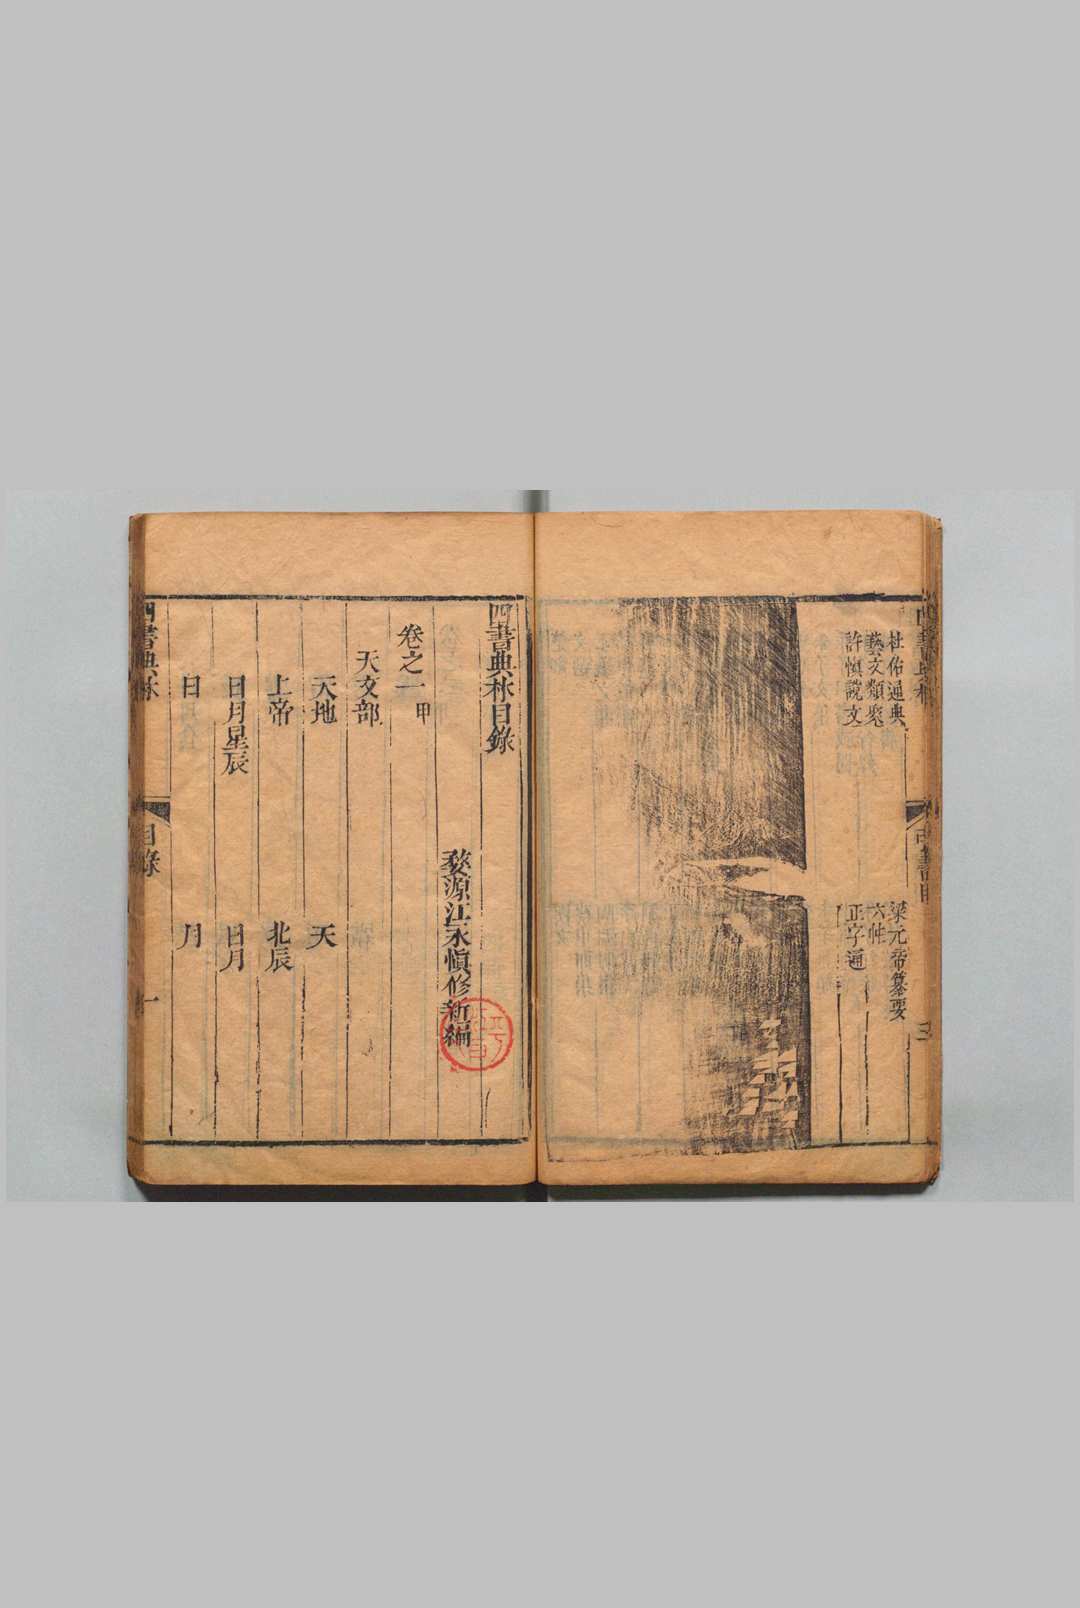 杜佑通典 梁元帝纂要
藝文類聚 六帖
許慎說文 正字通
四書典林目錄
婺源江永慎修新編
卷之一 甲
天文部
天地 天
上帝 北辰
日月星辰 日月
日 月
四書典林 目錄 一